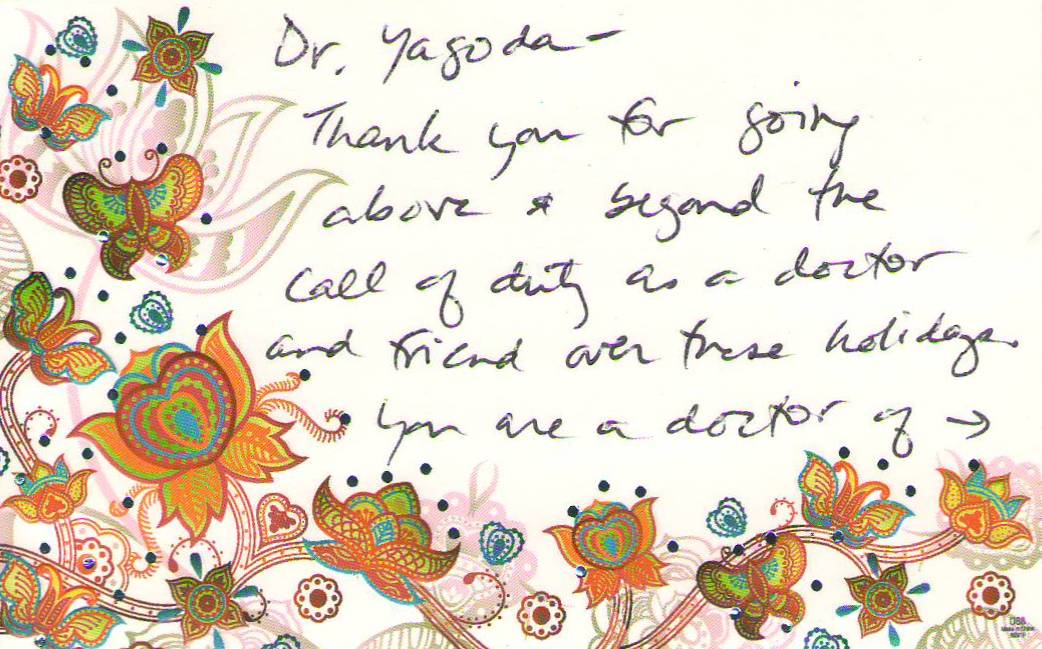 Dr. Yagoda—
Thank you for going
above & beyond the
call of duty as a doctor
and friend over these holidays.
You are a doctor of →